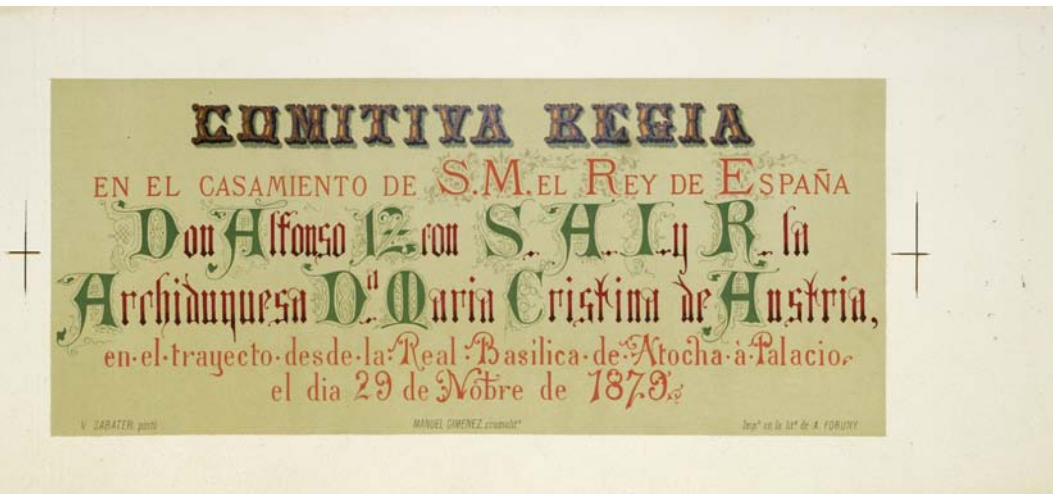 COMITIVA REGIA
EN EL CASAMIENTO DE S.M. EL REY DE ESPAÑA
Don Alfonso 12 con S. A. I. y R. la
Archiduquesa D.ª Maria Cristina de Austria,
en·el·trayecto·desde·la·Real·Basilica·de·Atocha·à·Palacio
el dia 29 de Nobre de 1879.
V. SABATER, pintó
MANUEL GIMENEZ, cromolitº
Impº en la litª de A. FORUNY